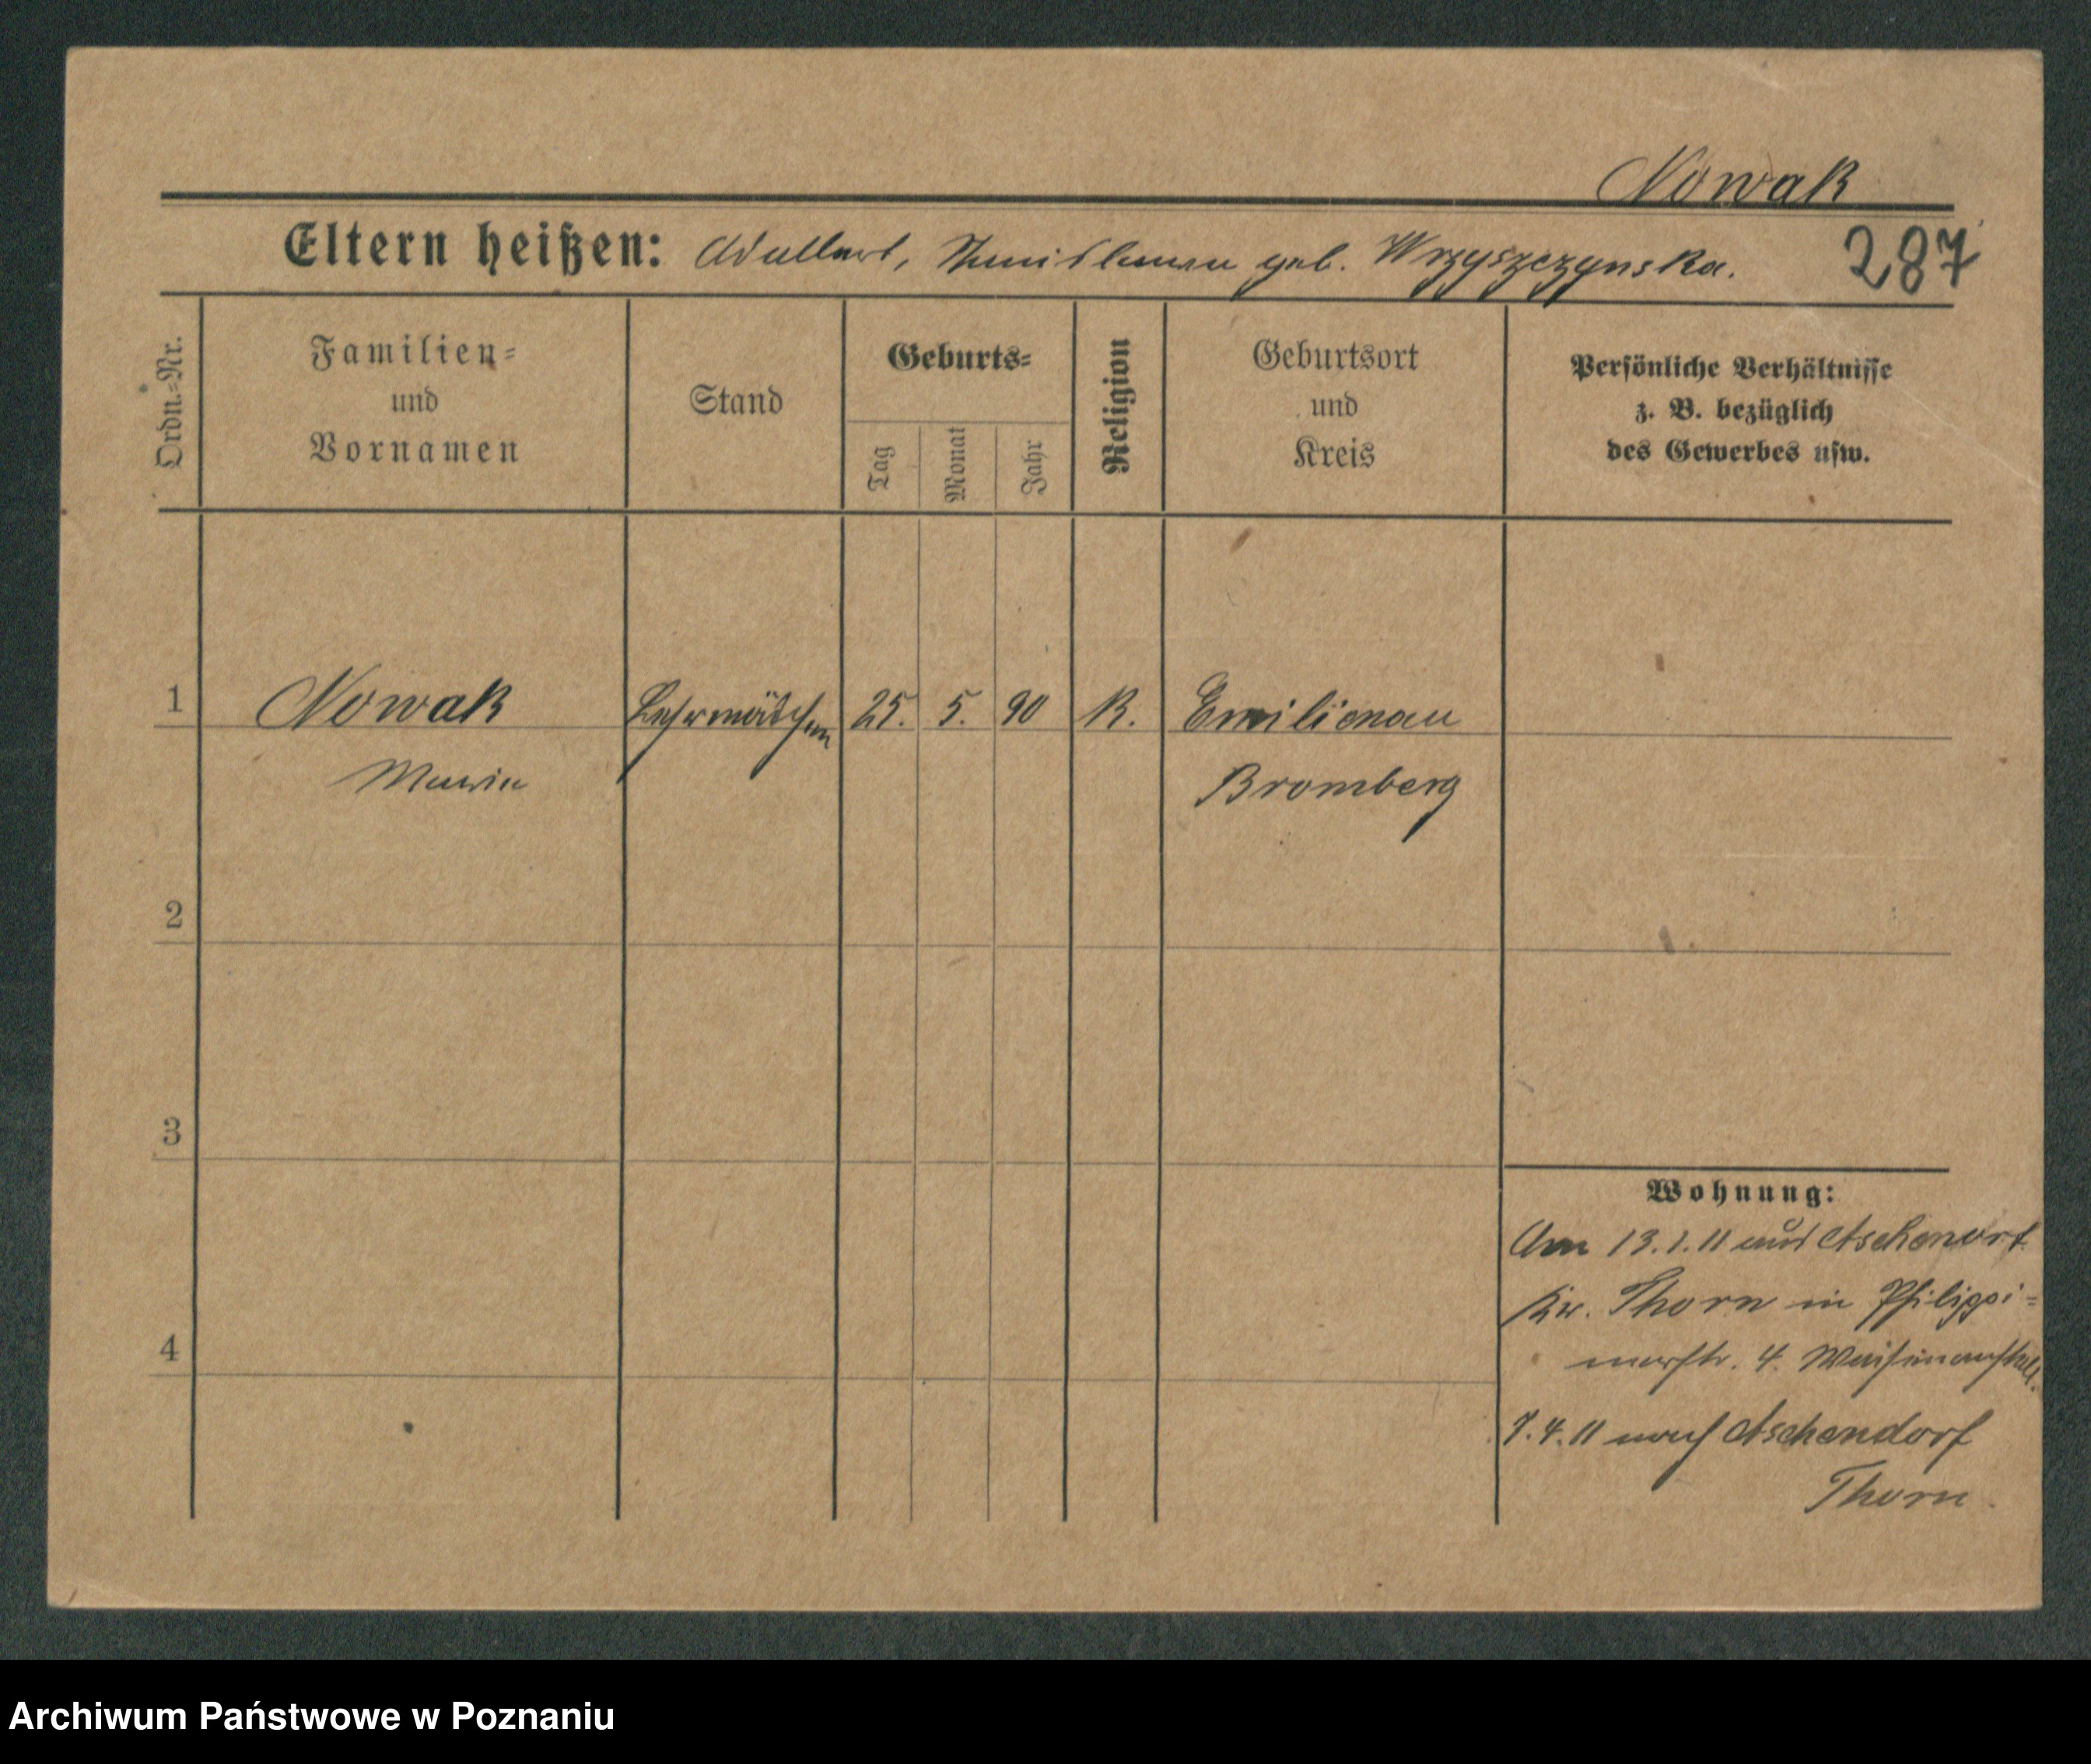 Nowak
Eltern heißen: Adalbert, Stanislawa geb. Wrzyszczynska.
287
Ordn.-Nr.
Familien-
und
Vornamen
Stand
Geburts-
Tag
Monat
Jahr
Religion
Geburtsort
und
Kreis
Persönliche Verhältnisse
z. B. bezüglich
des Gewerbes usw.
1 Nowak Lehrmädchen 25. 5. 90 K. Emilienau
Maria Bromberg
2
3
4
Wohnung:
Am 13.1.11 aus Aschenort
Kr. Thorn in Philippi-
nerstr. 4. Waisenanstalt.
7.4.11 nach Aschendorf
Thorn.
Archiwum Państwowe w Poznaniu